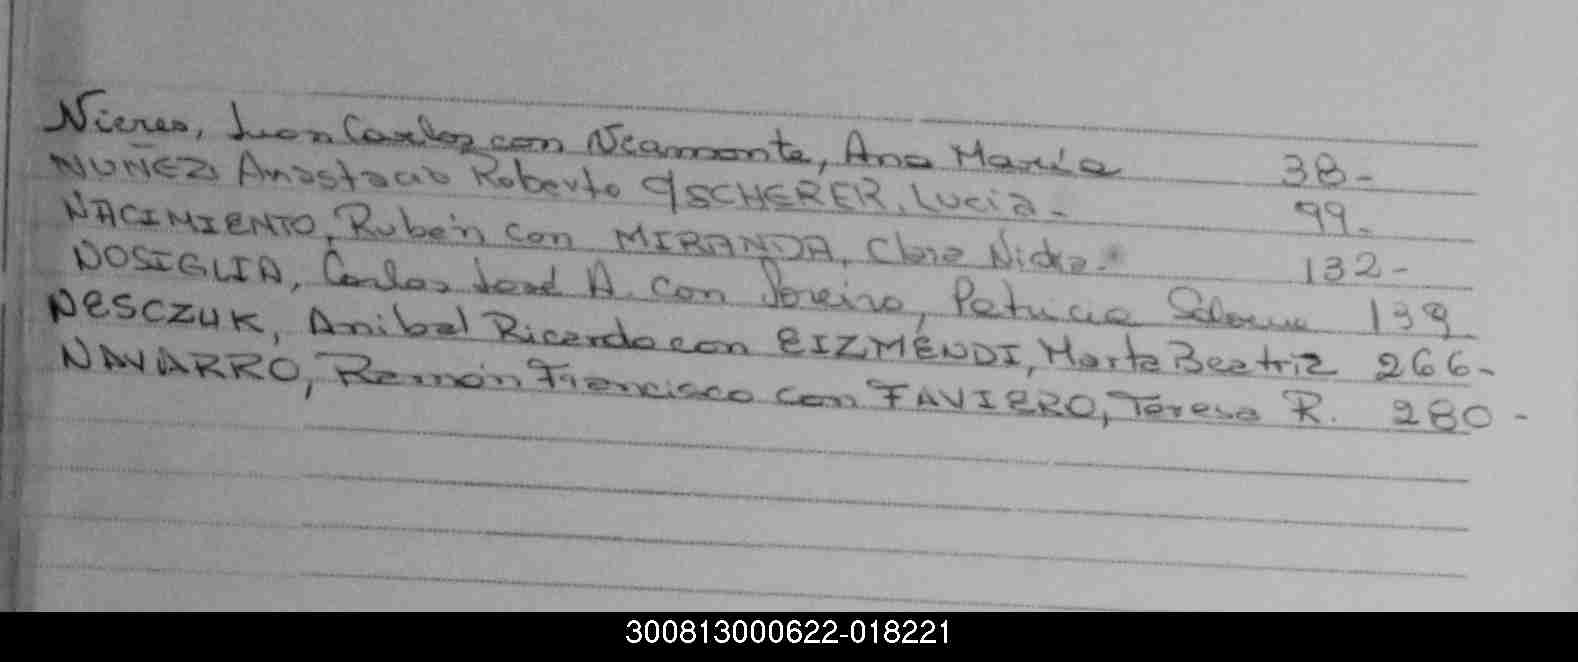 Nieres, Juan Carlos con Viamonte, Ana María 38-
NUÑEZ, Anastacio Roberto c/SCHERER, Lucia- 99-
NACIMIENTO, Rubén con MIRANDA, Clara Nidia- 132-
NOSIGLIA, Carlos José A. con Pereira, Patricia 139
NESCZUK, Anibal Ricardo con EIZMENDI, Marta Beatriz 266-
NAVARRO, Ramón Francisco con FAVIERO, Teresa R. 280-
300813000622-018221